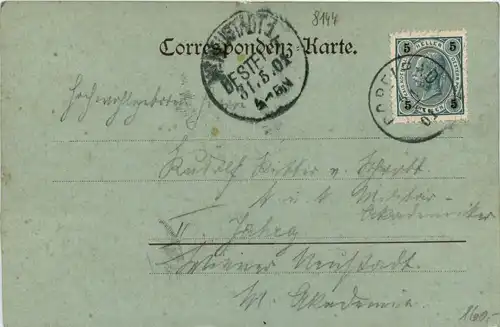 8144
Correspondenz-Karte.
NEUSTADT
BESTELLT
31.5.01
5 HELLER 5
5 5
Hochwohlgeboren
Rudolf Ritter v.
k. u. k. Militär-
Akademiker
II. Jahrg.
Wiener Neustadt.
M. Akademie.